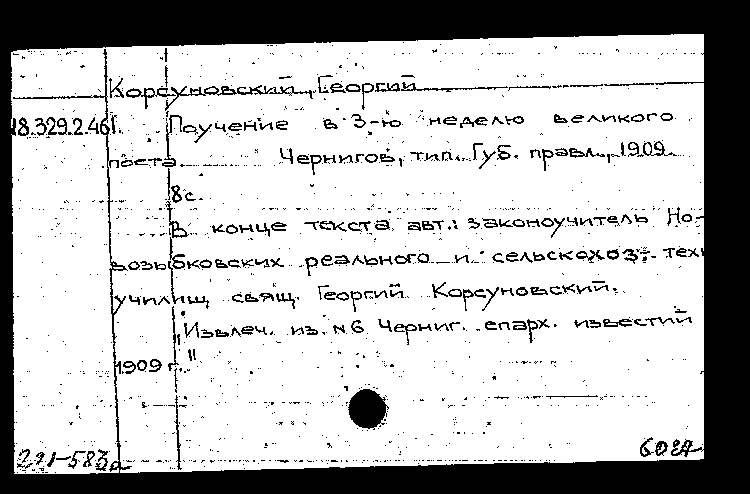 Корсуновский, Георгий
18.329.2.461. Поучение в 3-ю неделю великого
поста. Чернигов, тип. Губ. правл., 1909.
8с.
В конце текста авт.: законоучитель Но-
возыбковских реального и сельскохоз.-техн
училищ свящ. Георгий Корсуновский.
„Извлеч. из. №6 Черниг. епарх. известий
1909 г."
291-583а